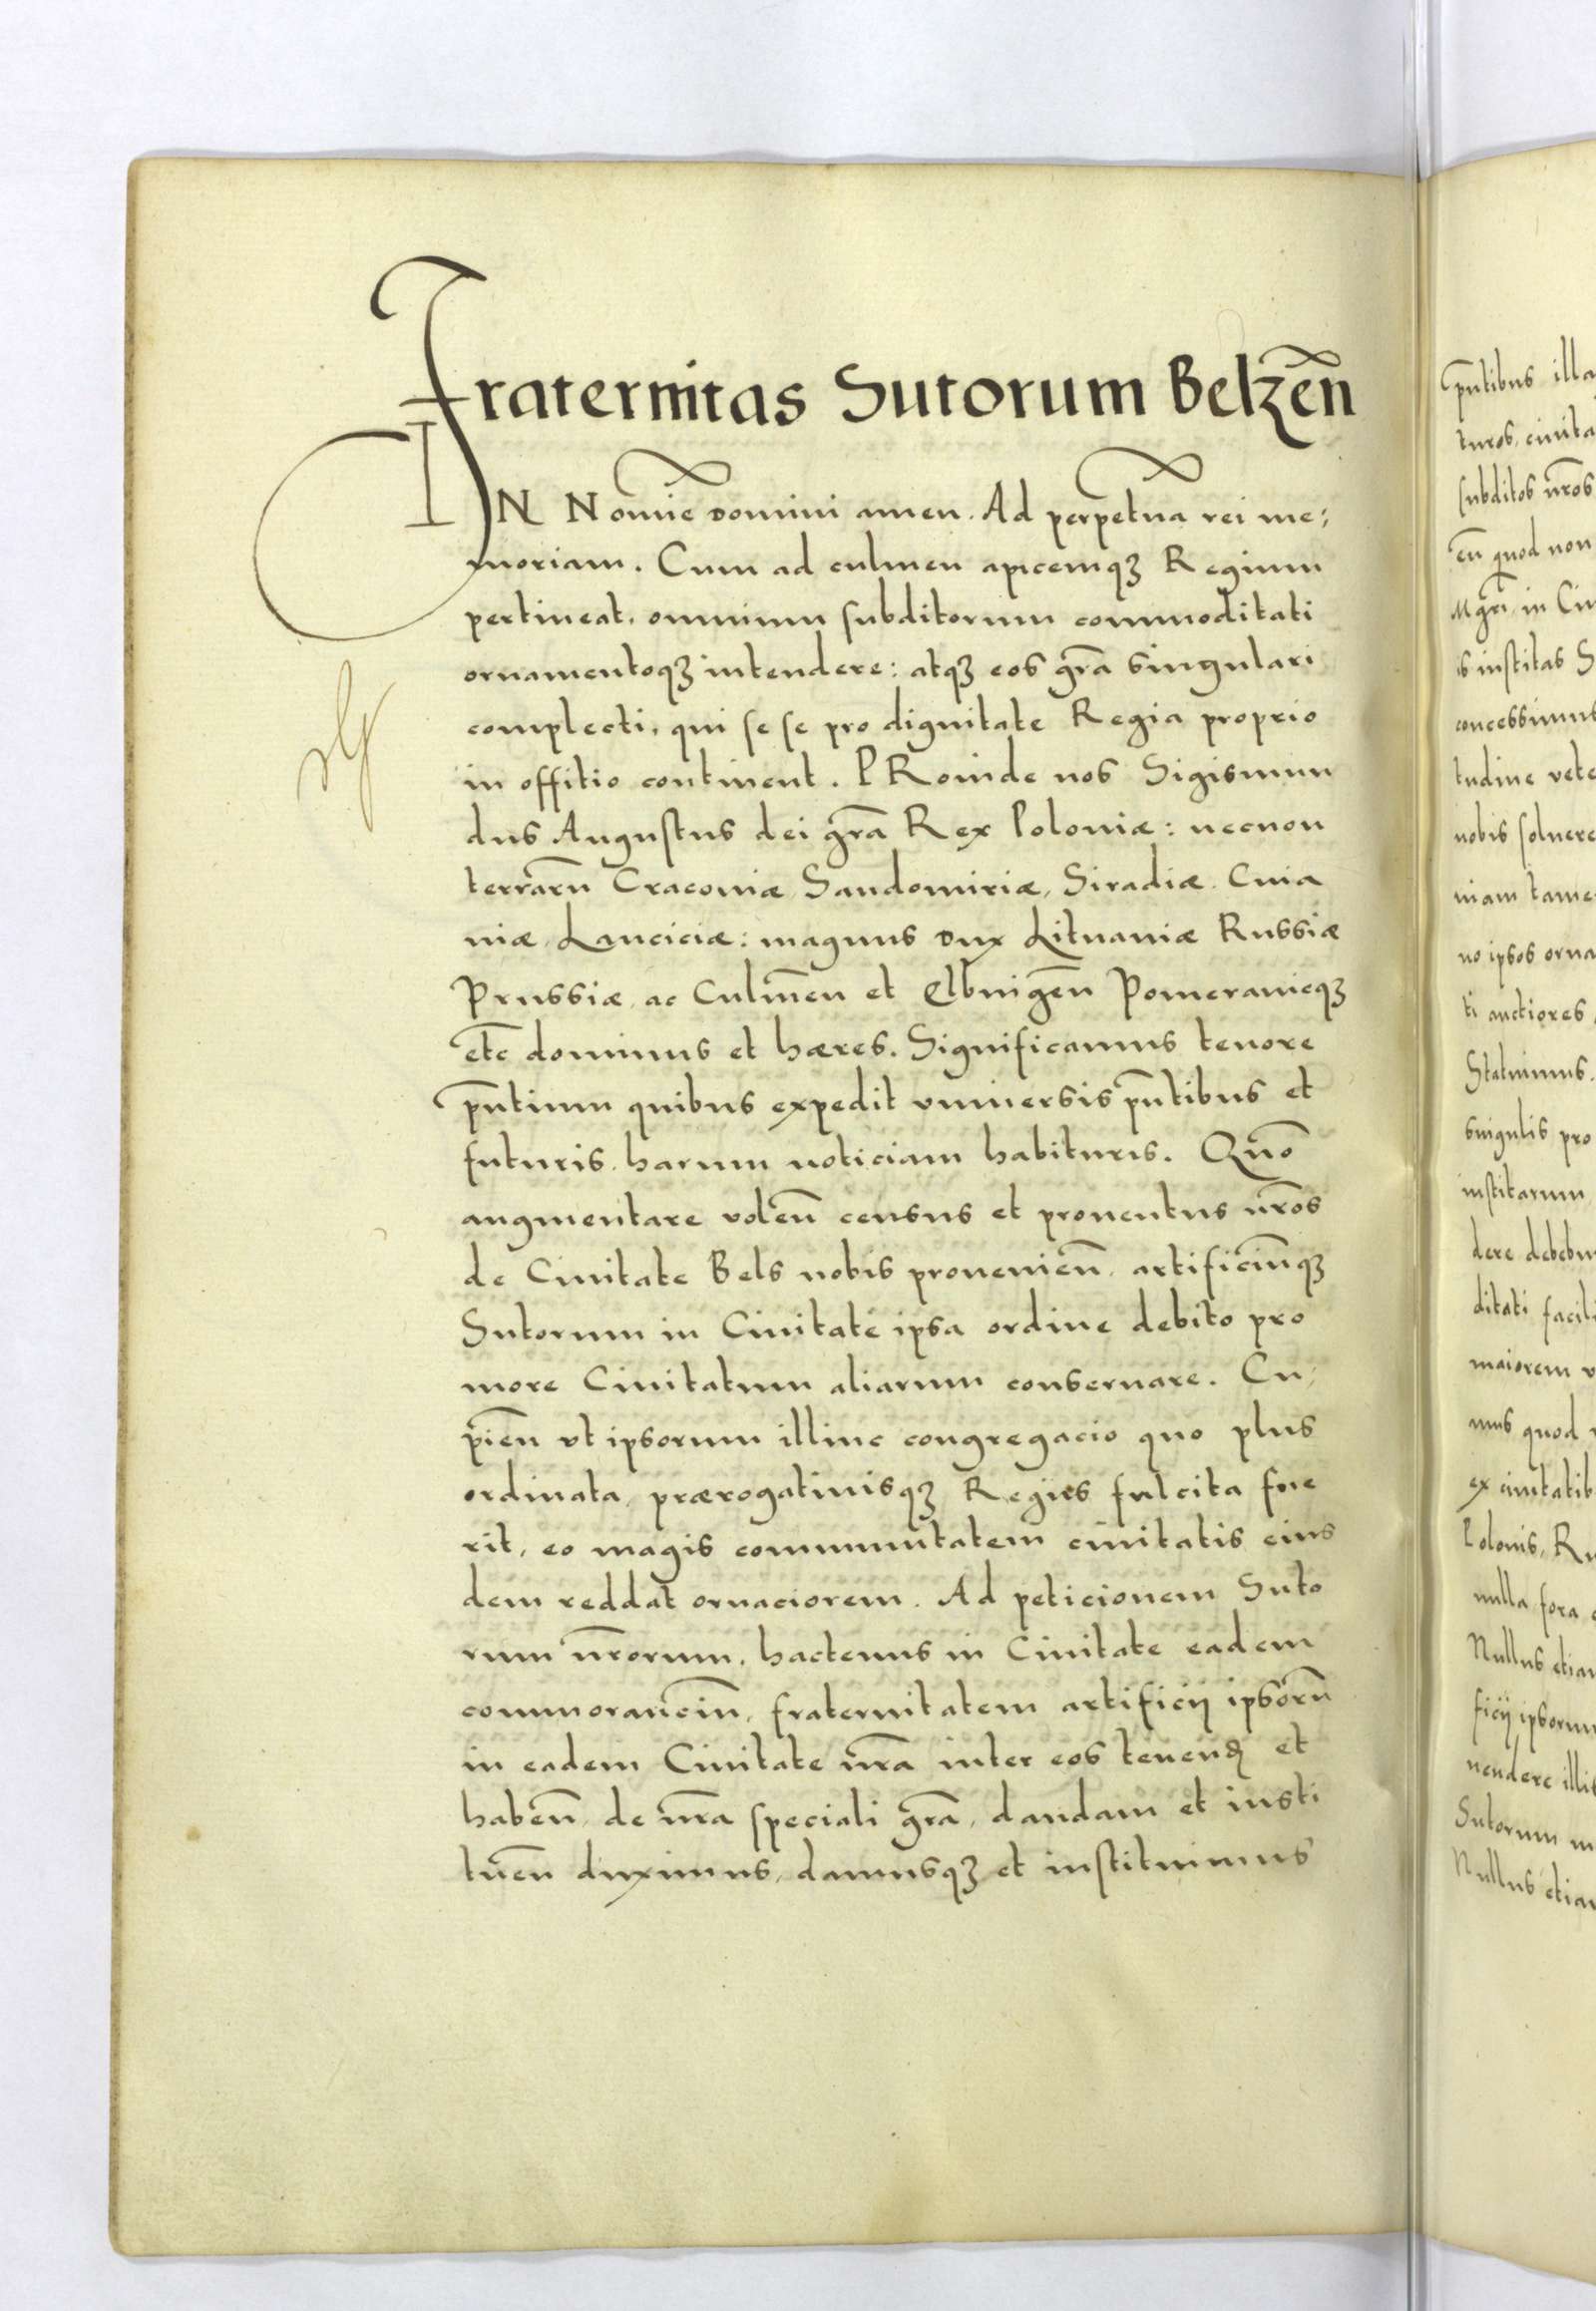 Fraternitas Sutorum Belzeñ
IN Nomie Domini amen. Ad perpetua rei me:
moriam. Cum ad culmen apicemqꝫ Regium
pertineat, omnium subditorum commoditati
ornamentoqꝫ intendere: atqꝫ eos gr̄a singulari
complecti, qui se se pro dignitate Regia proprio
in offitio continent. PRoinde nos Sigismun
dus Augustus dei gr̄a Rex Poloniæ: necnon
terrarū Cracoviæ, Sandomiriæ, Siradiæ, Cuia
uiæ, Lanciciæ: magnus Dux Lituaniæ Russiæ
Prussiæ, ac Culmeñ et Elbingeñ Pomeranieqꝫ
etc̄ dominus et hæres. Significamus tenore
pñtium quibus expedit vniversis pñtibus et
futuris, harum noticiam habituris. Quō
augmentare voleñ census et prouentus nr̄os
de Ciuitate Bels nobis prouenieñ, artificiūqꝫ
Sutorum in Ciuitate ipsa ordine debito pro
more Ciuitatum aliarum conseruare. Cu:
pieñ vt ipsorum illinc congregacio quo plus
ordinata, prærogatiuisqꝫ Regijs fulcita fue
rit, eo magis communitatem ciuitatis eius
dem reddat ornaciorem. Ad peticionem Suto
rum nr̄orum, hactenus in Ciuitate eadem
commoranciū, fraternitatem artificij ipsorū
in eadem Ciuitate nr̄a inter eos tenenꝺ et
habeñ, de nr̄a speciali gr̄a, dandam et insti
tueñ duximus, damusqꝫ et instituimus
pñtibus illa
turos, ciuita
subditos nr̄os
eñ quod non
Mgr̄i, in Ciu
is institas S
concessimus
tudine vete
nobis soluere
niam tame
no ipsos orna
ti auctiores
Statuimus.
singulis pro
institarum
dere debebu
ditati facili
maiorem v
mus quod
ex ciuitatib
Polonis, Ru
nulla fora
Nullus etiam
ficij ipsorum
uendere illis
Sutorum in
Nullus etiam